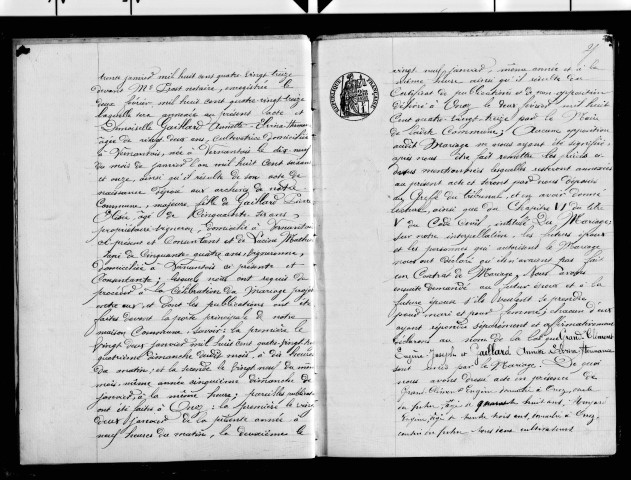 trente janvier mil huit cent quatre vingt treize
devant Me notaire, enregistrée le
deux février mil huit cent quatre vingt treize
laquelle sera annexée au présent acte et
Demoiselle Gaillard Annette Elvina
âgée de vingt deux ans, cultivatrice domiciliée
à Vernantois, née à Vernantois le dix neuf
du mois de janvier l'an mil huit cent soixante
et onze, ainsi qu'il résulte de son acte de
naissance déposé aux archives de notre
Commune, majeure, fille de Gaillard Pierre
âgé de Cinquante trois ans,
propriétaire vigneron, domicilié à Vernantois
ci-présent et Consentant et de
âgée de Cinquante quatre ans, vigneronne,
Domiciliée à Vernantois ci présente et
Consentante; lesquels nous ont requis de
procéder à la Célébration du Mariage projeté
entre eux et dont les publications ont été
faites devant la porte principale de notre
maison Commune, savoir: la première le
vingt deux janvier mil huit cent quatre vingt treize
quatrième dimanche dudit mois, à dix heures
du matin; et la seconde le vingt neuf du même
mois, même année cinquième dimanche de
janvier, à la même heure; pareilles publications
ont été faites à Onoz: la première le vingt
deux janvier de la présente année à
neuf heures du matin, la deuxième le
RÉPUBLIQUE FRANÇAISE
vingt neuf janvier même année et à la
même heure ainsi qu'il résulte du
Certificat de publications et de non opposition
délivré à Onoz le deux février mil huit
cent quatre vingt treize par le Maire
de ladite Commune; Aucune opposition
audit Mariage ne nous ayant été signifiée,
après nous être fait remettre les pièces ci
dessus mentionnées lesquelles resteront annexées
au présent acte et seront par nous déposées
au Greffe du tribunal, et en avoir donné
lecture, ainsi que du Chapitre VI du titre
V du Code Civil, intitulé Du Mariage;
sur notre interpellation, les futurs époux
et les personnes qui autorisent le Mariage
nous ont déclaré qu'il n'avaient pas fait
de Contrat de Mariage, Nous avons
ensuite demandé au futur époux et à la
future épouse s'ils veulent se prendre
pour mari et pour femme; chacun d'eux
ayant répondu séparément et affirmativement
déclarons au nom de la loi que Grand Clément
Eugène Joseph et Gaillard Annette Elvina
sont unis par le Mariage. De quoi
nous avons dressé acte en présence de
Grand à Onoz, oncle
du futur, âgé de quarante huit ans,
Eugène, âgé de trente trois ans, à Onoz,
cousin du futur tous deux cultivateurs